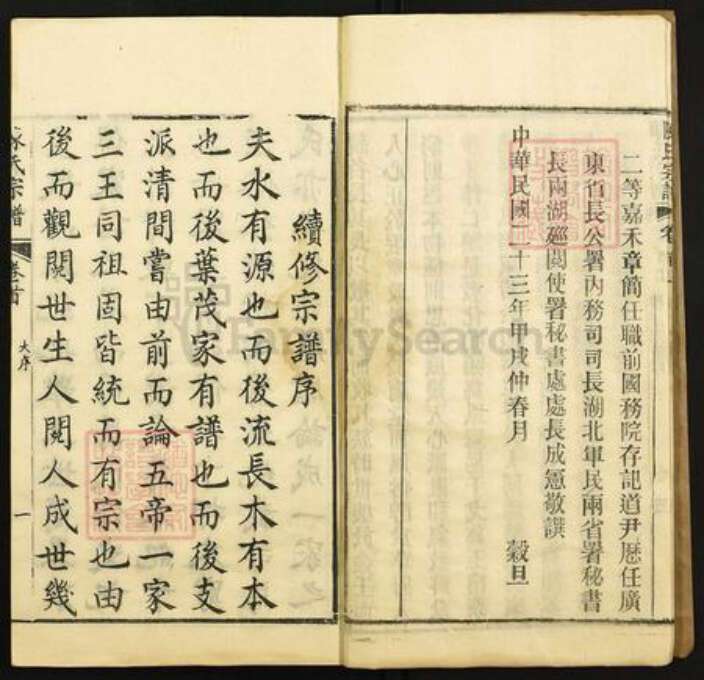 二等嘉禾章簡任職前國務院存記道尹歷任廣
東省長公署內務司司長湖北軍民兩省署秘書
長兩湖廵閱使署秘書處處長成憲敬譔
中華民國二十三年甲戌仲春月 穀旦
續修宗譜序
夫水有源也而後流長木有本
也而後葉茂家有譜也而後支
派清間嘗由前而論五帝一家
三王同祖固皆統而有宗也由
後而觀閱世生人閱人成世幾
氏宗譜 卷首 大序 一
FamilySearch